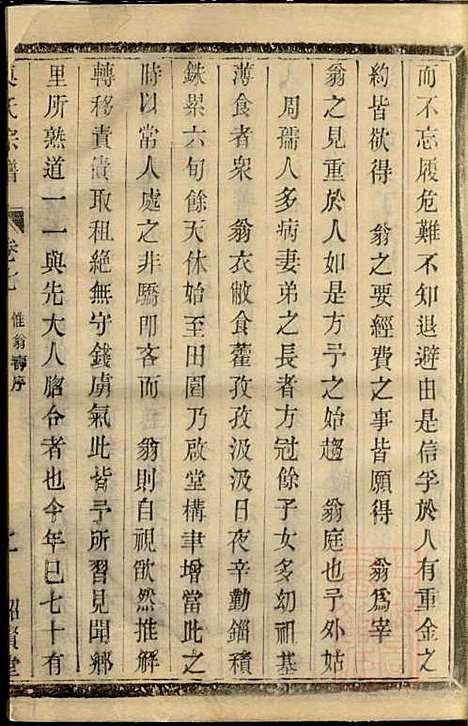 而不忘履危難不知退避由是信孚於人有重金之
約皆欲得　翁之要經費之事皆願得　翁為宰
翁之見重於人如是方予之始趨　翁庭也予外姑
周孺人多病妻弟之長者方冠餘子女多幼祖基
薄食者衆　翁衣敝食藿孜孜汲汲日夜辛勤錙積
銖累六旬餘天休始至田園乃啟堂構聿增當此之
時以常人處之非驕即吝而　翁則自視欿然推解
轉移責債取租絕無守錢虜氣此皆予所習見聞鄉
里所熟道一一與先大人脗合者也今年已七十有
氏宗譜　卷七　惟翁壽序　七　紹賢堂